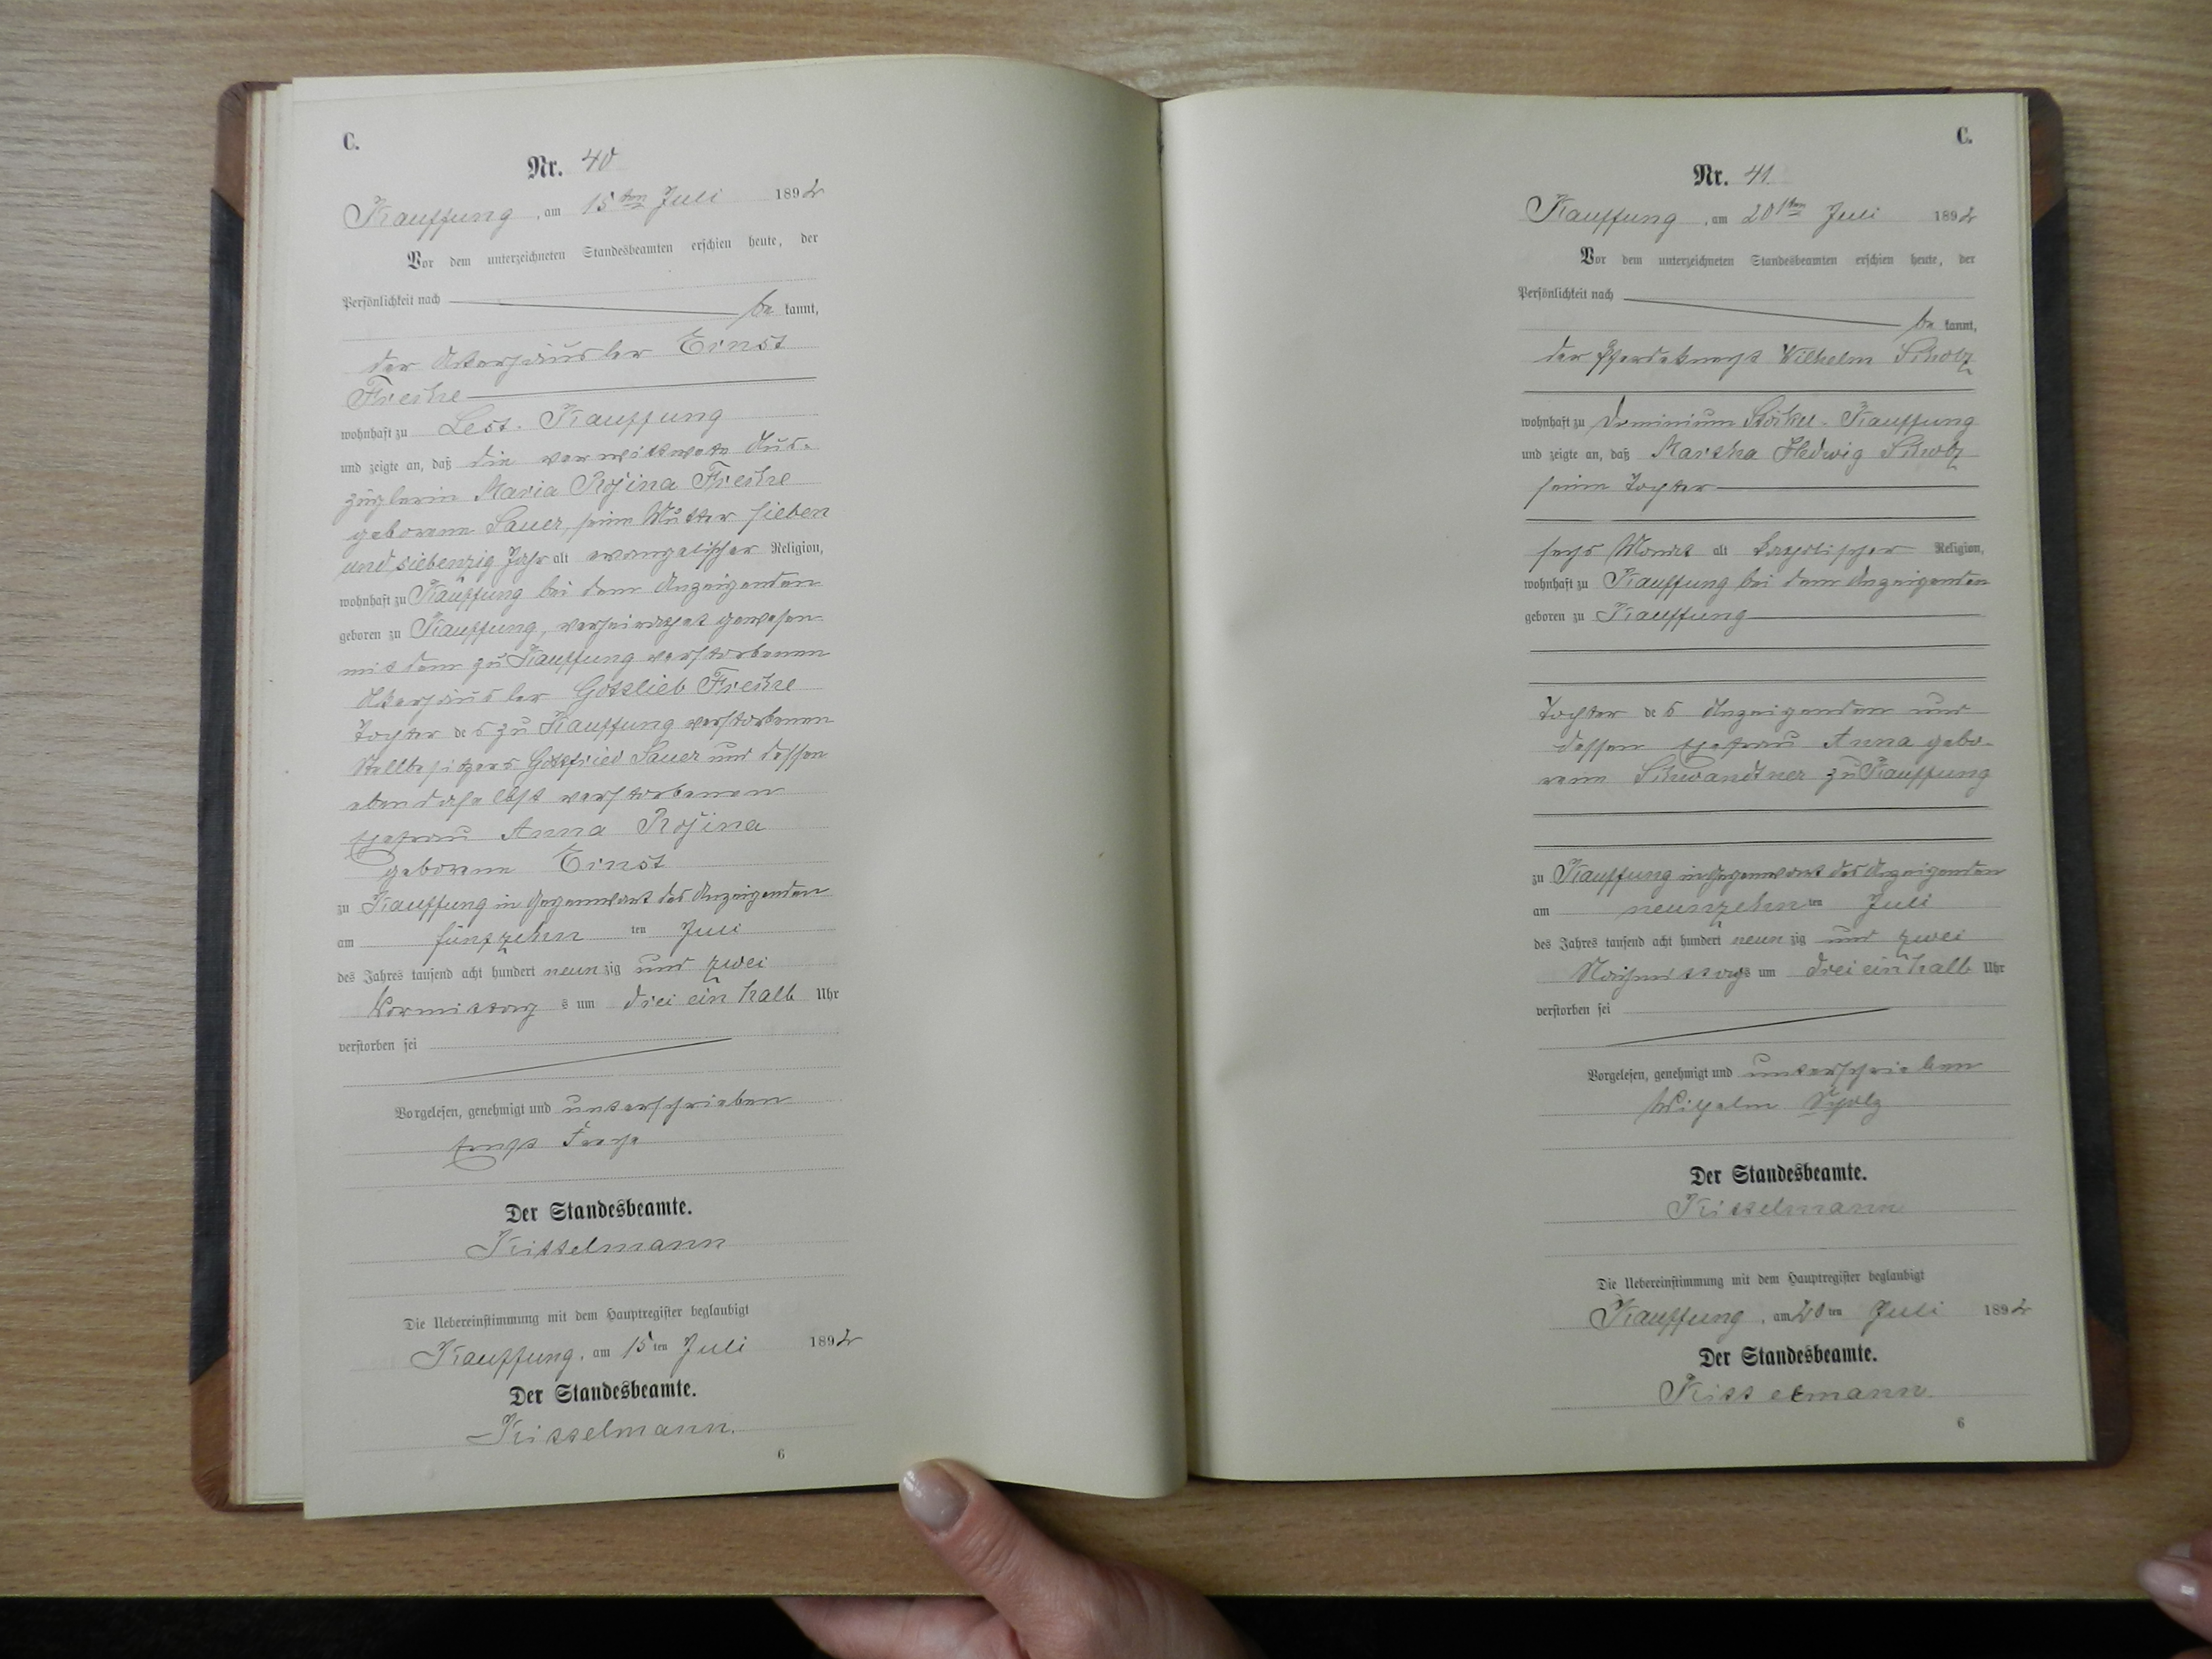 C.
Nr. 40
Kauffung, am 15ten Juli 1892
Vor dem unterzeichneten Standesbeamten erschien heute, der
Persönlichkeit nach
be kannt,
der Ackerhäusler Ernst
Friebe
wohnhaft zu Lest. Kauffung
und zeigte an, daß die verwittwete Aus-
züglerin Maria Rosina
geborene Sauer, seine Mutter sieben
und siebenzig Jahr alt evangelischer Religion,
wohnhaft zu Kauffung bei dem Anzeigenden
geboren zu Kauffung, verheirathet gewesen
mit dem zu Kauffung verstorbenen
Ackerhäusler Gottlieb
Tochter des zu Kauffung verstorbenen
Stellbesitzers Gottfried Sauer und dessen
ebendaselbst verstorbenen
Ehefrau Anna Rosina
geborene Ernst
zu Kauffung in Gegenwart des Anzeigenden
am fünfzehn ten Juli
des Jahres tausend acht hundert neunzig und zwei
Vormittag s um drei ein halb Uhr
verstorben sei
Vorgelesen, genehmigt und unterschrieben
Ernst
Der Standesbeamte.
Kisselmann
Die Uebereinstimmung mit dem Hauptregister beglaubigt
Kauffung, am 15ten Juli 1892
Der Standesbeamte.
Kisselmann.
6
C.
Nr. 41
Kauffung, am 20ten Juli 1892
Vor dem unterzeichneten Standesbeamten erschien heute, der
Persönlichkeit nach
be kannt,
der Pferdeknecht Wilhelm Scholz
wohnhaft zu Dominium Stöckel-Kauffung
und zeigte an, daß Martha Hedwig Scholz
seine Tochter
sechs Monat alt katholischer Religion,
wohnhaft zu Kauffung bei dem Anzeigenden
geboren zu Kauffung
Tochter des Anzeigenden und
dessen Ehefrau Anna gebo-
rene Schwandtner zu Kauffung
zu Kauffung in Gegenwart des Anzeigenden
am neunzehn ten Juli
des Jahres tausend acht hundert neunzig und zwei
Nachmittags um drei ein halb Uhr
verstorben sei
Vorgelesen, genehmigt und unterschrieben
Wilhelm Scholz
Der Standesbeamte.
Kisselmann
Die Uebereinstimmung mit dem Hauptregister beglaubigt
Kauffung, am 20ten Juli 1892
Der Standesbeamte.
Kisselmann.
6